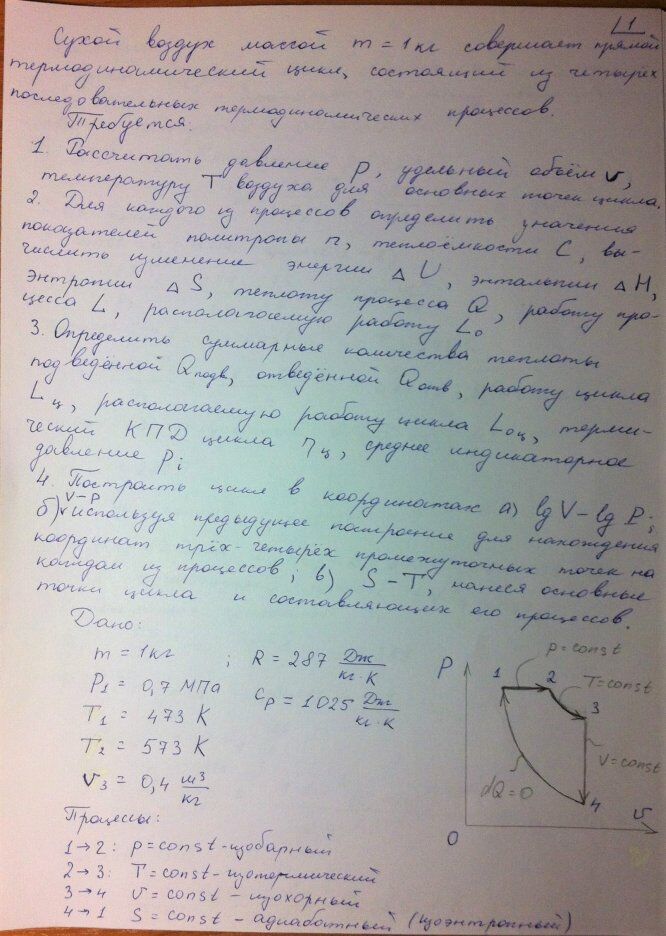 1
Сухой воздух массой m = 1кг совершает прямой
термодинамический цикл, состоящий из четырёх
последовательных термодинамических процессов.
Требуется:
1. Рассчитать давление P, удельный объём v,
температуру T воздуха для основных точек цикла.
2. Для каждого из процессов определить значения
показателей политропы n, теплоёмкости C, вы-
числить изменение энергии ΔU, энтальпии ΔH,
энтропии ΔS, теплоту процесса Q, работу про-
цесса L, располагаемую работу L₀
3. Определить суммарные количества теплоты
подведённой Qподв, отведённой Qотв, работу цикла
Lц, располагаемую работу цикла Lоц, терми-
ческий КПД цикла ηц, среднее индикаторное
давление Pi
4. Построить цикл в координатах а) lg V – lg P;
б) V–P используя предыдущее построение для нахождения
координат трёх-четырёх промежуточных точек на
каждом из процессов; в) S – T, нанеся основные
точки цикла и составляющих его процессов.
Дано:
m = 1кг ; R = 287 Дж/кг·К
P₁ = 0,7 МПа cp = 1025 Дж/кг·К
T₁ = 473 К
T₂ = 573 К
v₃ = 0,4 м3/кг
Процессы:
1→2: p = const - изобарный
2→3: T = const - изотермический
3→4 v = const - изохорный
4→1 S = const - адиабатный (изоэнтропный)
P
p = const
1
2
T = const
3
V = const
dQ = 0
4
0
v